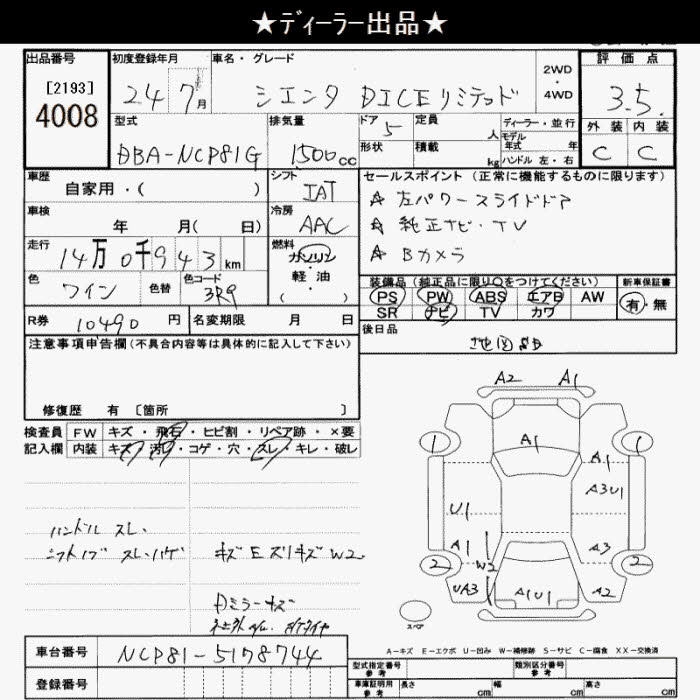 ★ディーラー出品★
出品番号 初度登録年月 車名・グレード 評価点
[2193] 4008 24 7月 シエンタ DICEリミテッド 2WD・4WD 3.5
外装 内装
C C
型式 排気量 ドア 定員 ディーラー・並行
DBA-NCP81G 1500cc 5 人 モデル年式 年
形状 積載 kg ハンドル 左・右
車歴 シフト セールスポイント (正常に機能するものに限ります)
自家用・( ) IAT ☆ 左パワースライドドア
車検 冷房 ☆ 純正ナビ・TV
年 月( 日) AAC ☆ Bカメラ
走行 燃料
14万0千943km ガソリン・軽油・( )
色 色替 色コード 装備品 (純正品に限り○をつけてください) 新車保証書
ワイン 3R9 PS PW ABS エアB AW 有・無
SR ナビ TV カワ
R券 10490円 名変期限 月 日 後日品
注意事項申告欄 (不具合内容等は具体的に記入して下さい)
修復歴 有 〔箇所 〕
検査員 FW キズ・飛石・ヒビ割・リペア跡・×要
記入欄 内装 キズ・汚れ・コゲ・穴・スレ・キレ・破レ
A2 A1
1 A1 1
A1
A3U1
U1
A1 A3
2 W2 2
UA3 A1U1 A2
スペア
ハンドル スレ、
シフトノブ スレ・ハゲ キズEズリキズW2
Dミラーキズ
A-キズ E-エクボ U-凹み W-補修跡 S-サビ C-腐食 XX-交換済
車台番号 NCP81-5178744
型式指定番号 参考 類別区分番号 参考
登録番号 車庫証明用 参考 長さ cm 幅 cm 高さ cm